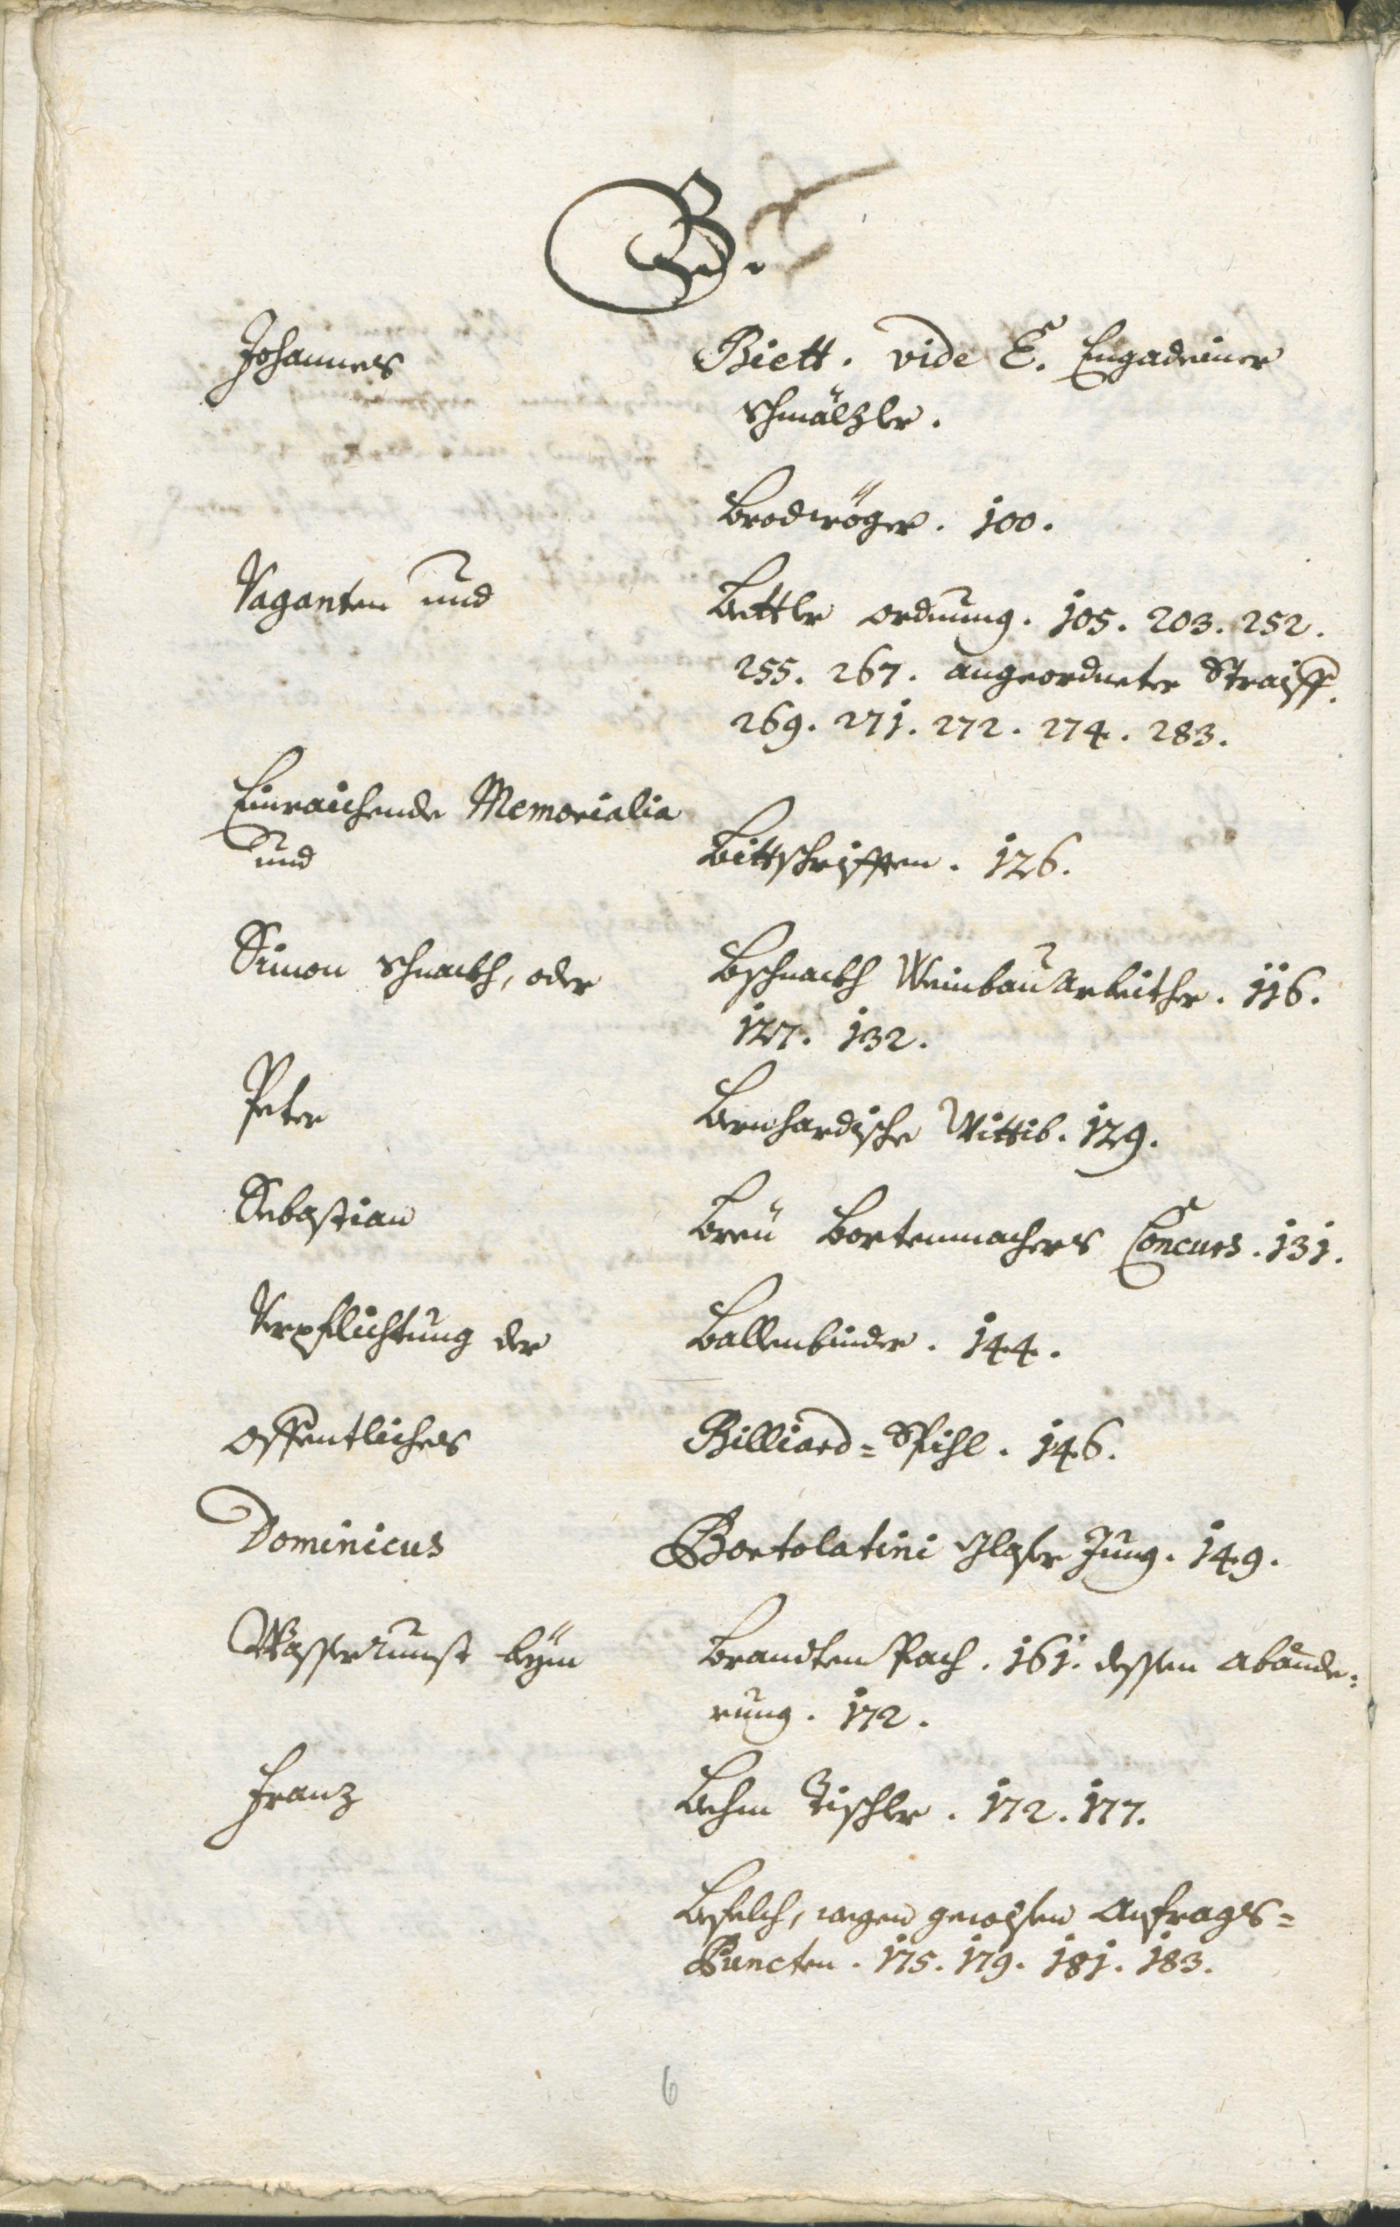 B.
Johannes Biett. vide E. Engadeiner
schmälzler.
Brodwöger. 100.
Vaganten und Bettler ordnung. 105. 203. 252.
255. 267. angeordneter Straiff.
269. 271. 272. 274. 283.
Einraichende Memorialia
und Bittschrifften. 126.
Simon schnarbh, oder Bschnarbh Weinbau Arbeither. 116.
127. 132.
Peter Bernhardische Wittib. 129.
Sebastian Breü Bortenmachers Concurs. 131.
Verpflichtung der Ballenbinder. 144.
offentliches Billiard=Spihl. 146.
Dominicus Bortolatini Glaser Jung. 149.
Wasserrunst beÿm Brandten Pach. 161. dessen abände=
rung. 172.
Franz Behm Tischler. 172. 177.
Befelch, wegen gewissen Anfrags=
Puncten. 175. 179. 181. 183.
6